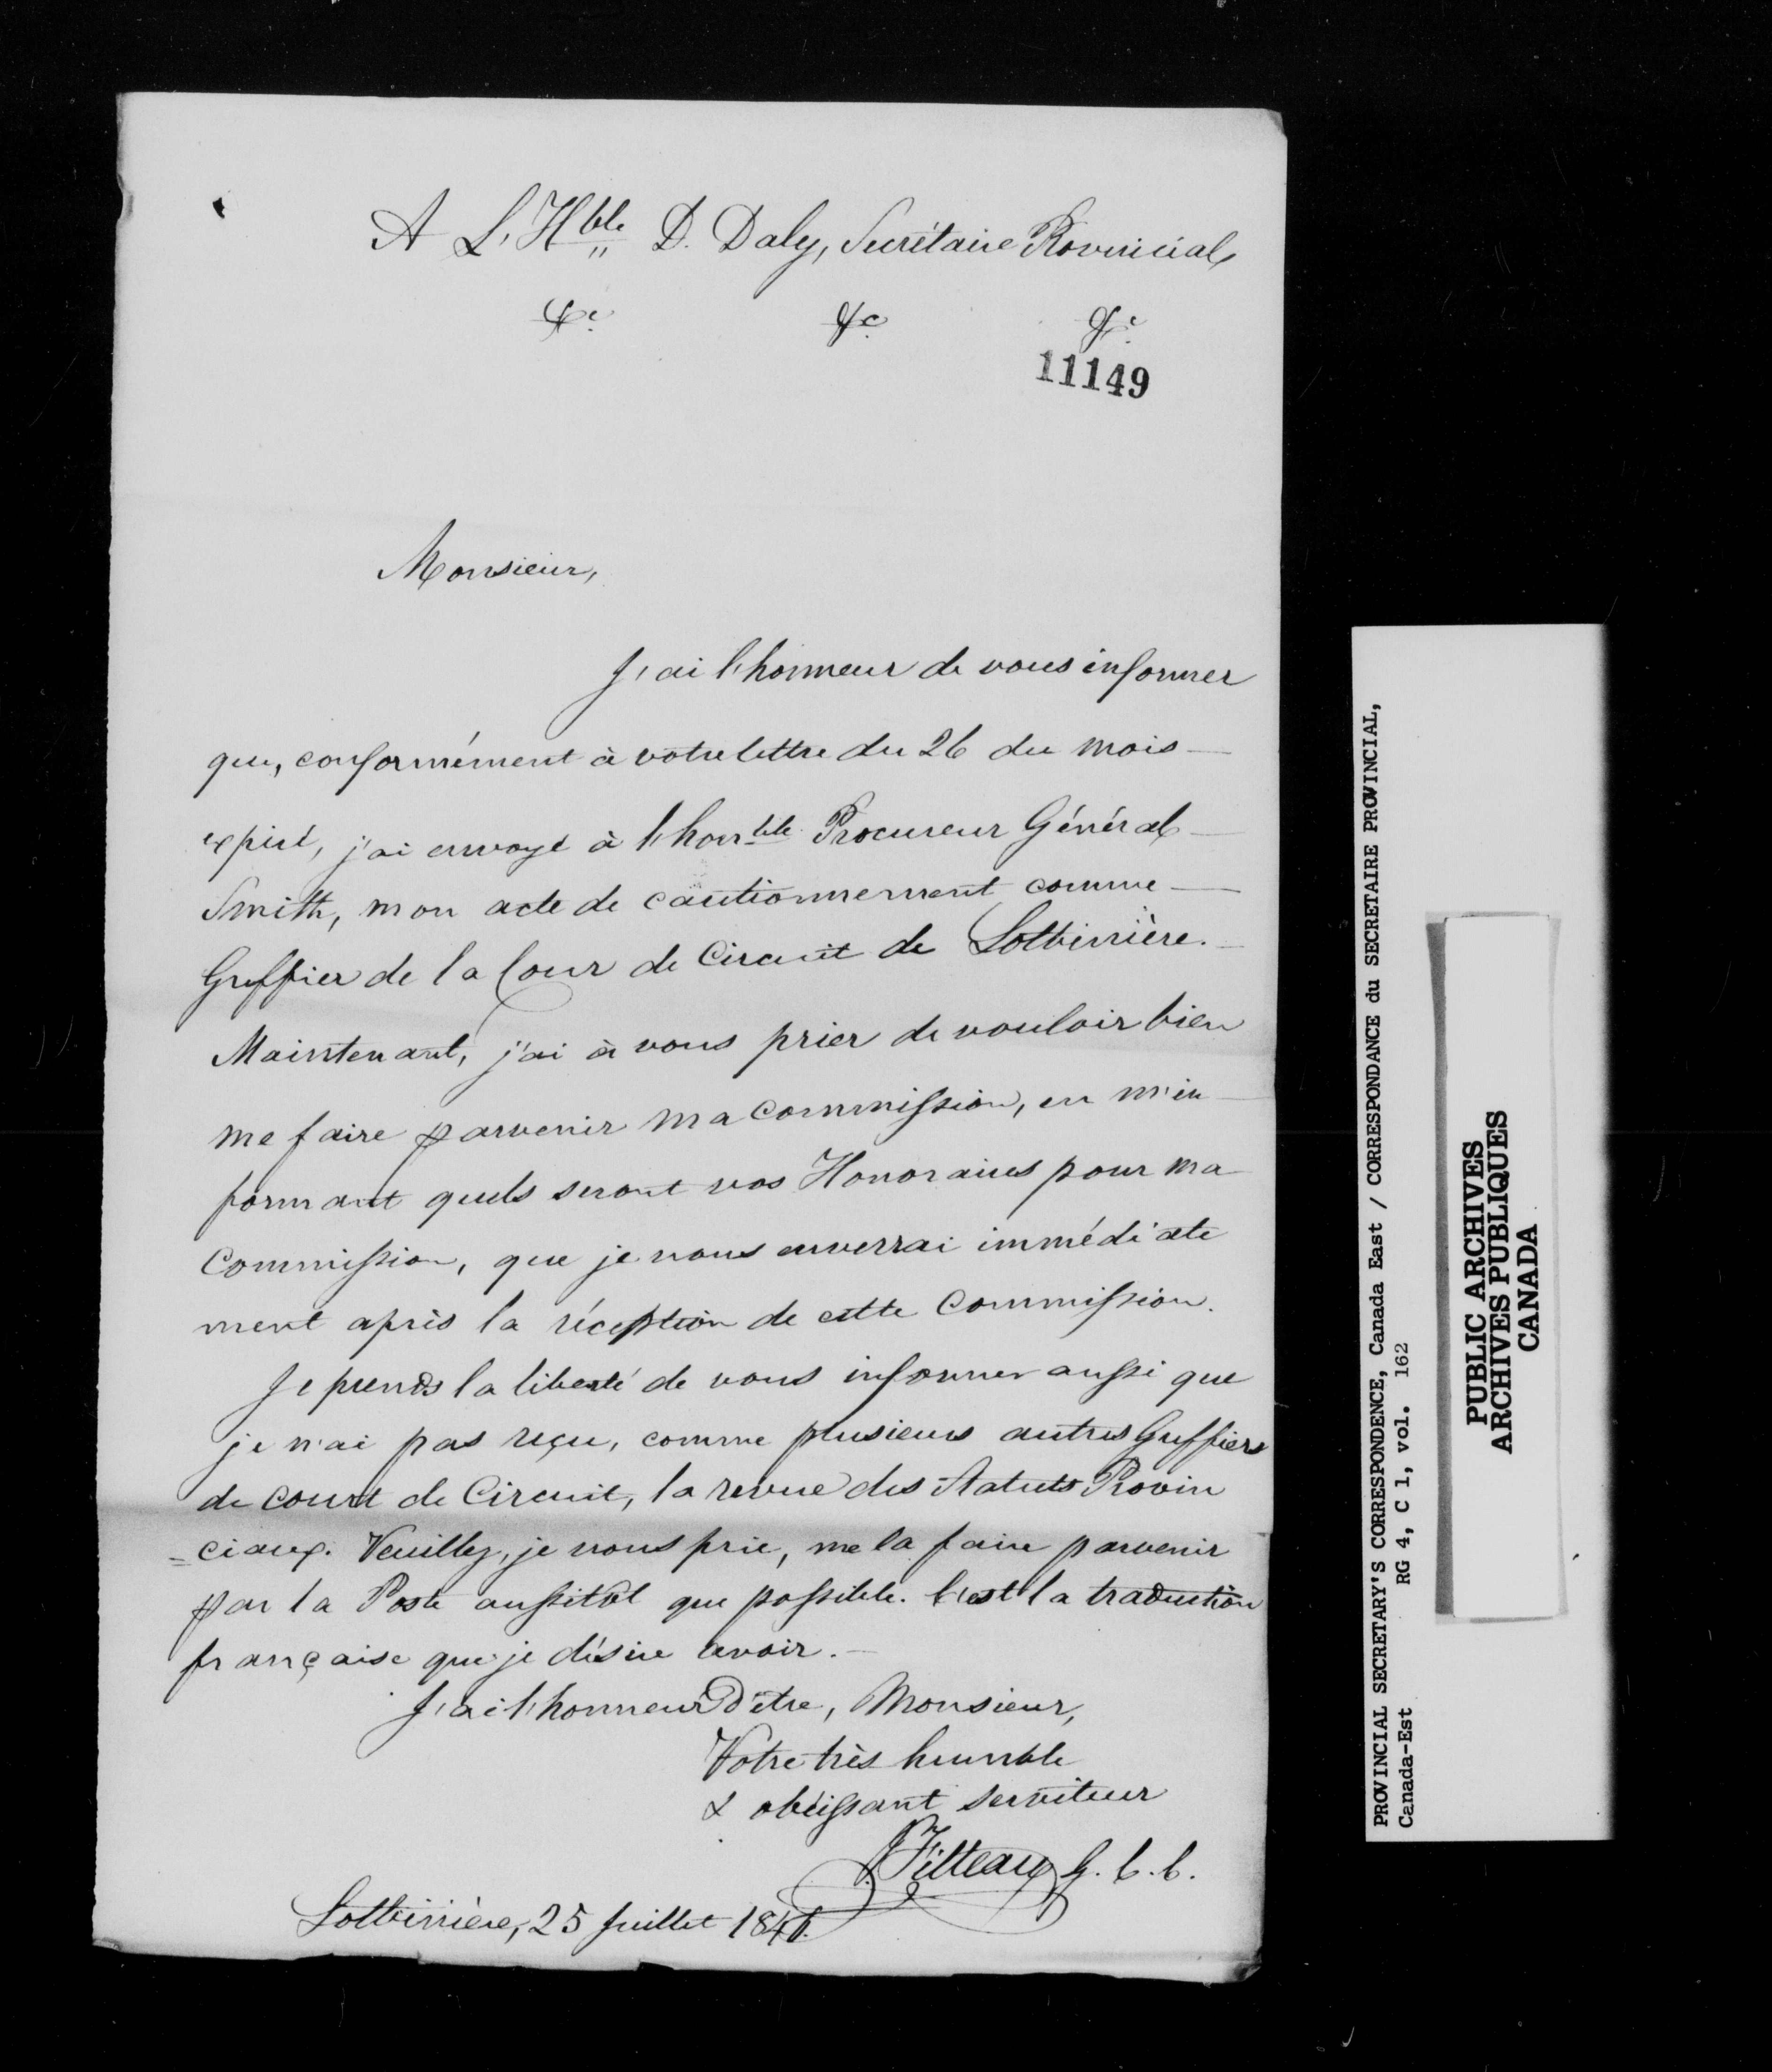 A L'Hble D. Daly, Secrétaire Provincial,
&c. &c. &c.
11149
Monsieur,
J'ai l'honneur de vous informer
que, conformément à votre lettre du 26 du mois
expiré, j'ai envoyé à l'honble Procureur Général
Smith, mon acte de cautionnement comme
Greffier de la Cour de Circuit de Lotbinière.
Maintenant, j'ai à vous prier de vouloir bien
me faire parvenir ma commission, en m'in
formant quels seront vos Honoraires pour ma
Commission, que je vous enverrai immédiate
ment après la réception de cette Commission.
Je prends la liberté de vous informer aussi que
je n'ai pas reçu, comme plusieurs autres Greffiers
de court de Circuit, la revue des Statuts Provin
=ciaux. Veuillez, je vous prie, me la faire parvenir
par la Poste aussitôt que possible. C'est la traduction
française que je désire avoir.
J'ai l'honneur d'être, Monsieur,
Votre très humble
& obéissant serviteur
Filteau G.C.C.
Lotbinière, 25 Juillet 1846.
PROVINCIAL SECRETARY'S CORRESPONDENCE, Canada East / CORRESPONDANCE du SECRETAIRE PROVINCIAL,
Canada-Est RG 4, C 1, vol. 162
PUBLIC ARCHIVES
ARCHIVES PUBLIQUES
CANADA